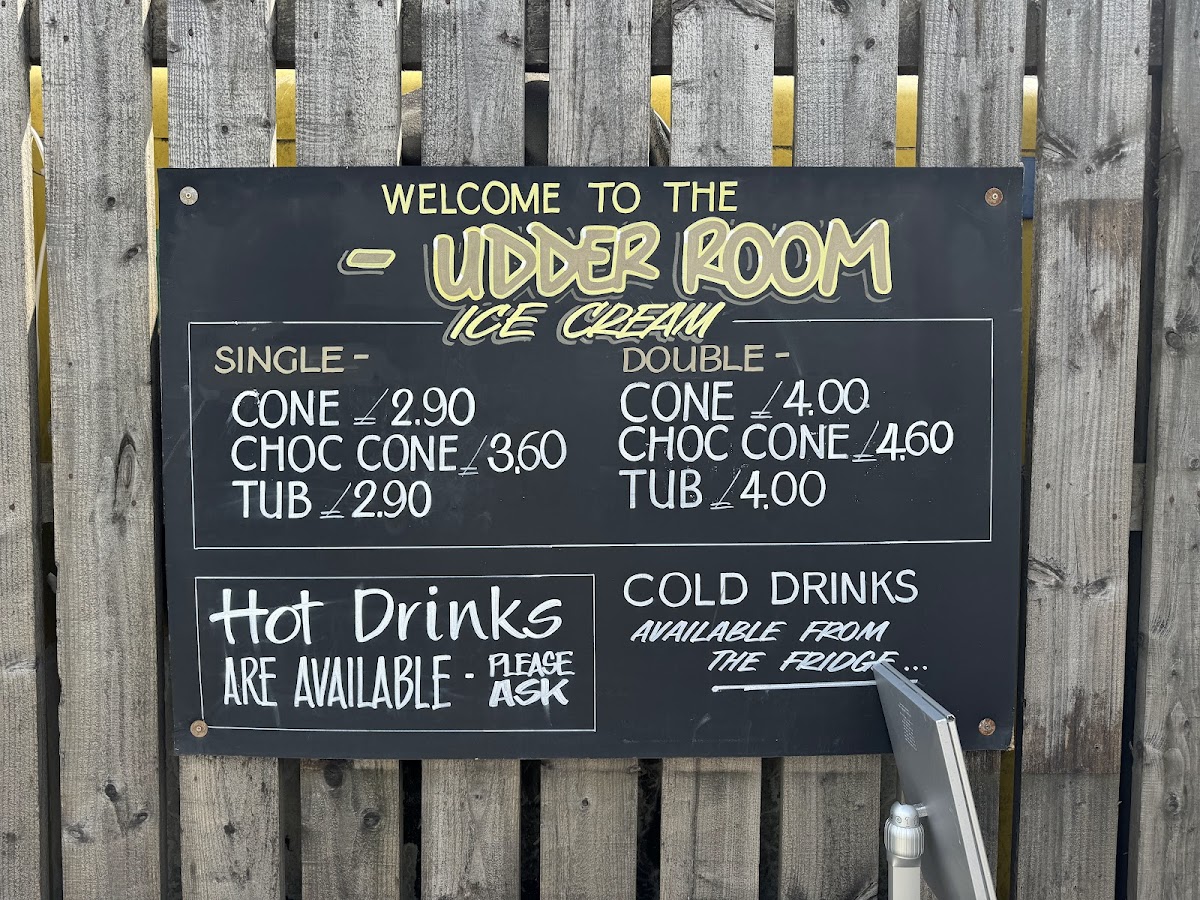 WELCOME TO THE
- UDDER ROOM
ICE CREAM
SINGLE -
CONE £2.90
CHOC CONE £3.60
TUB £2.90
DOUBLE -
CONE £4.00
CHOC CONE £4.60
TUB £4.00
Hot Drinks
ARE AVAILABLE - PLEASE
ASK
COLD DRINKS
AVAILABLE FROM
THE FRIDGE...